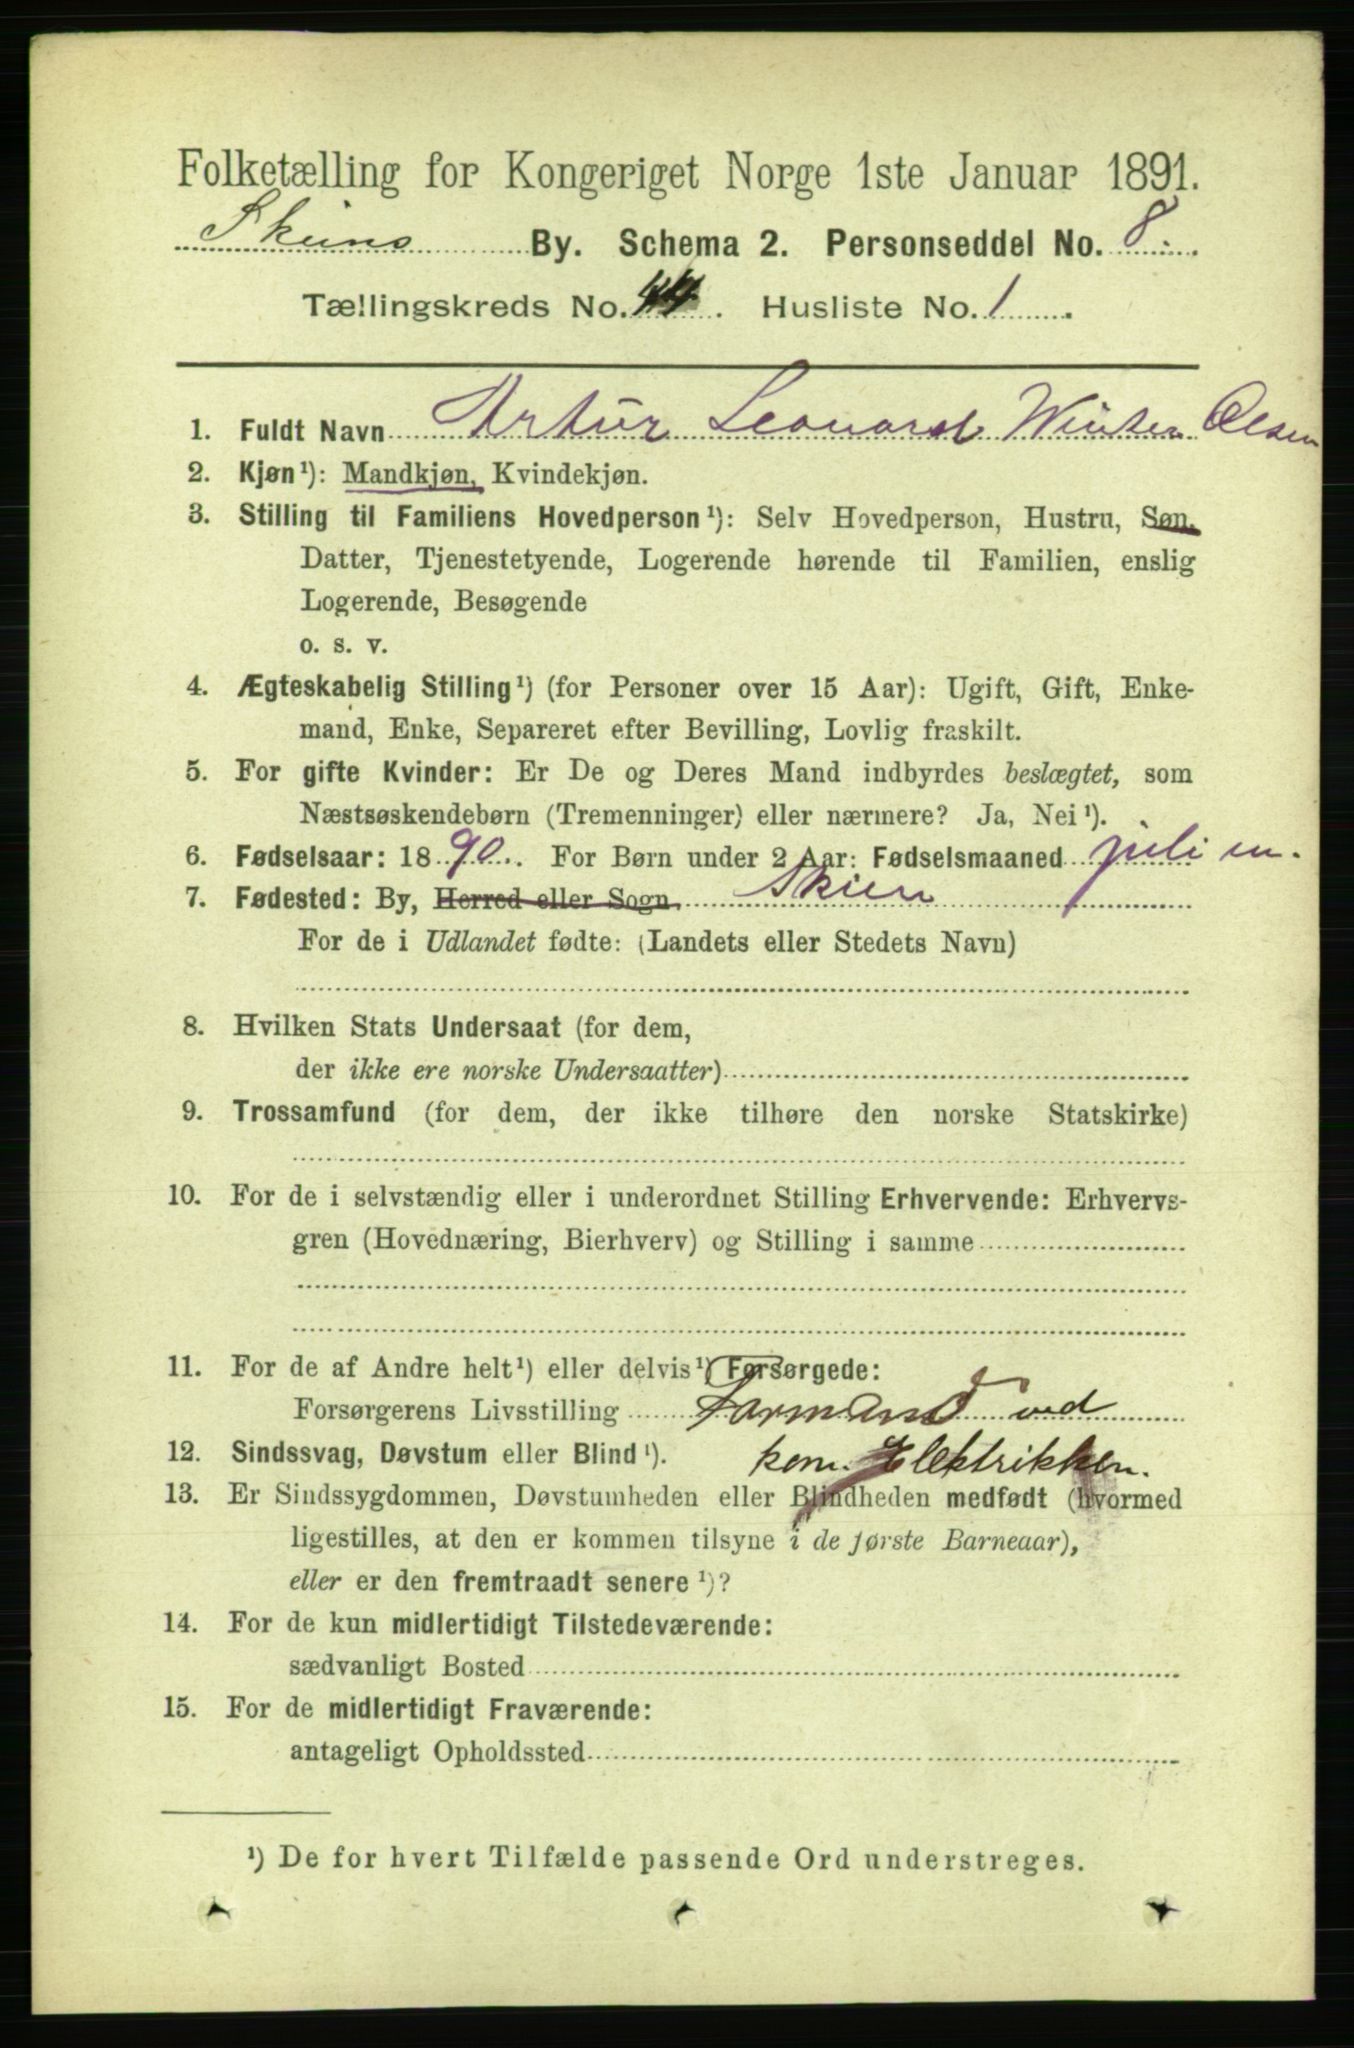 Folketælling for Kongeriget Norge 1ste Januar 1891.
Skiens By. Schema 2. Personseddel No. 8.
Tællingskreds No. 44. Husliste No. 1.
1. Fuldt Navn Artur Leonard Winter Olsen
2. Kjøn¹): Mandkjøn, Kvindekjøn.
3. Stilling til Familiens Hovedperson¹): Selv Hovedperson, Hustru, Søn,
Datter, Tjenestetyende, Logerende hørende til Familien, enslig
Logerende, Besøgende
o. s. v.
4. Ægteskabelig Stilling¹) (for Personer over 15 Aar): Ugift, Gift, Enke-
mand, Enke, Separeret efter Bevilling, Lovlig fraskilt.
5. For gifte Kvinder: Er De og Deres Mand indbyrdes beslægtet, som
Næstsøskendebørn (Tremenninger) eller nærmere? Ja, Nei¹).
6. Fødselsaar: 1890. For Børn under 2 Aar: Fødselsmaaned juli m.
7. Fødested: By, Herred eller Sogn Skien
For de i Udlandet fødte: (Landets eller Stedets Navn)
8. Hvilken Stats Undersaat (for dem,
der ikke ere norske Undersaatter)
9. Trossamfund (for dem, der ikke tilhøre den norske Statskirke)
10. For de i selvstændig eller i underordnet Stilling Erhvervende: Erhvervs-
gren (Hovednæring, Bierhverv) og Stilling i samme
11. For de af Andre helt¹) eller delvis¹) Forsørgede:
Forsørgerens Livsstilling Formand ved
12. Sindssvag, Døvstum eller Blind¹). kom. Elektrikken.
13. Er Sindssygdommen, Døvstumheden eller Blindheden medfødt (hvormed
ligestilles, at den er kommen tilsyne i de første Barneaar),
eller er den fremtraadt senere¹)?
14. For de kun midlertidigt Tilstedeværende:
sædvanligt Bosted
15. For de midlertidigt Fraværende:
antageligt Opholdssted
¹) De for hvert Tilfælde passende Ord understreges.